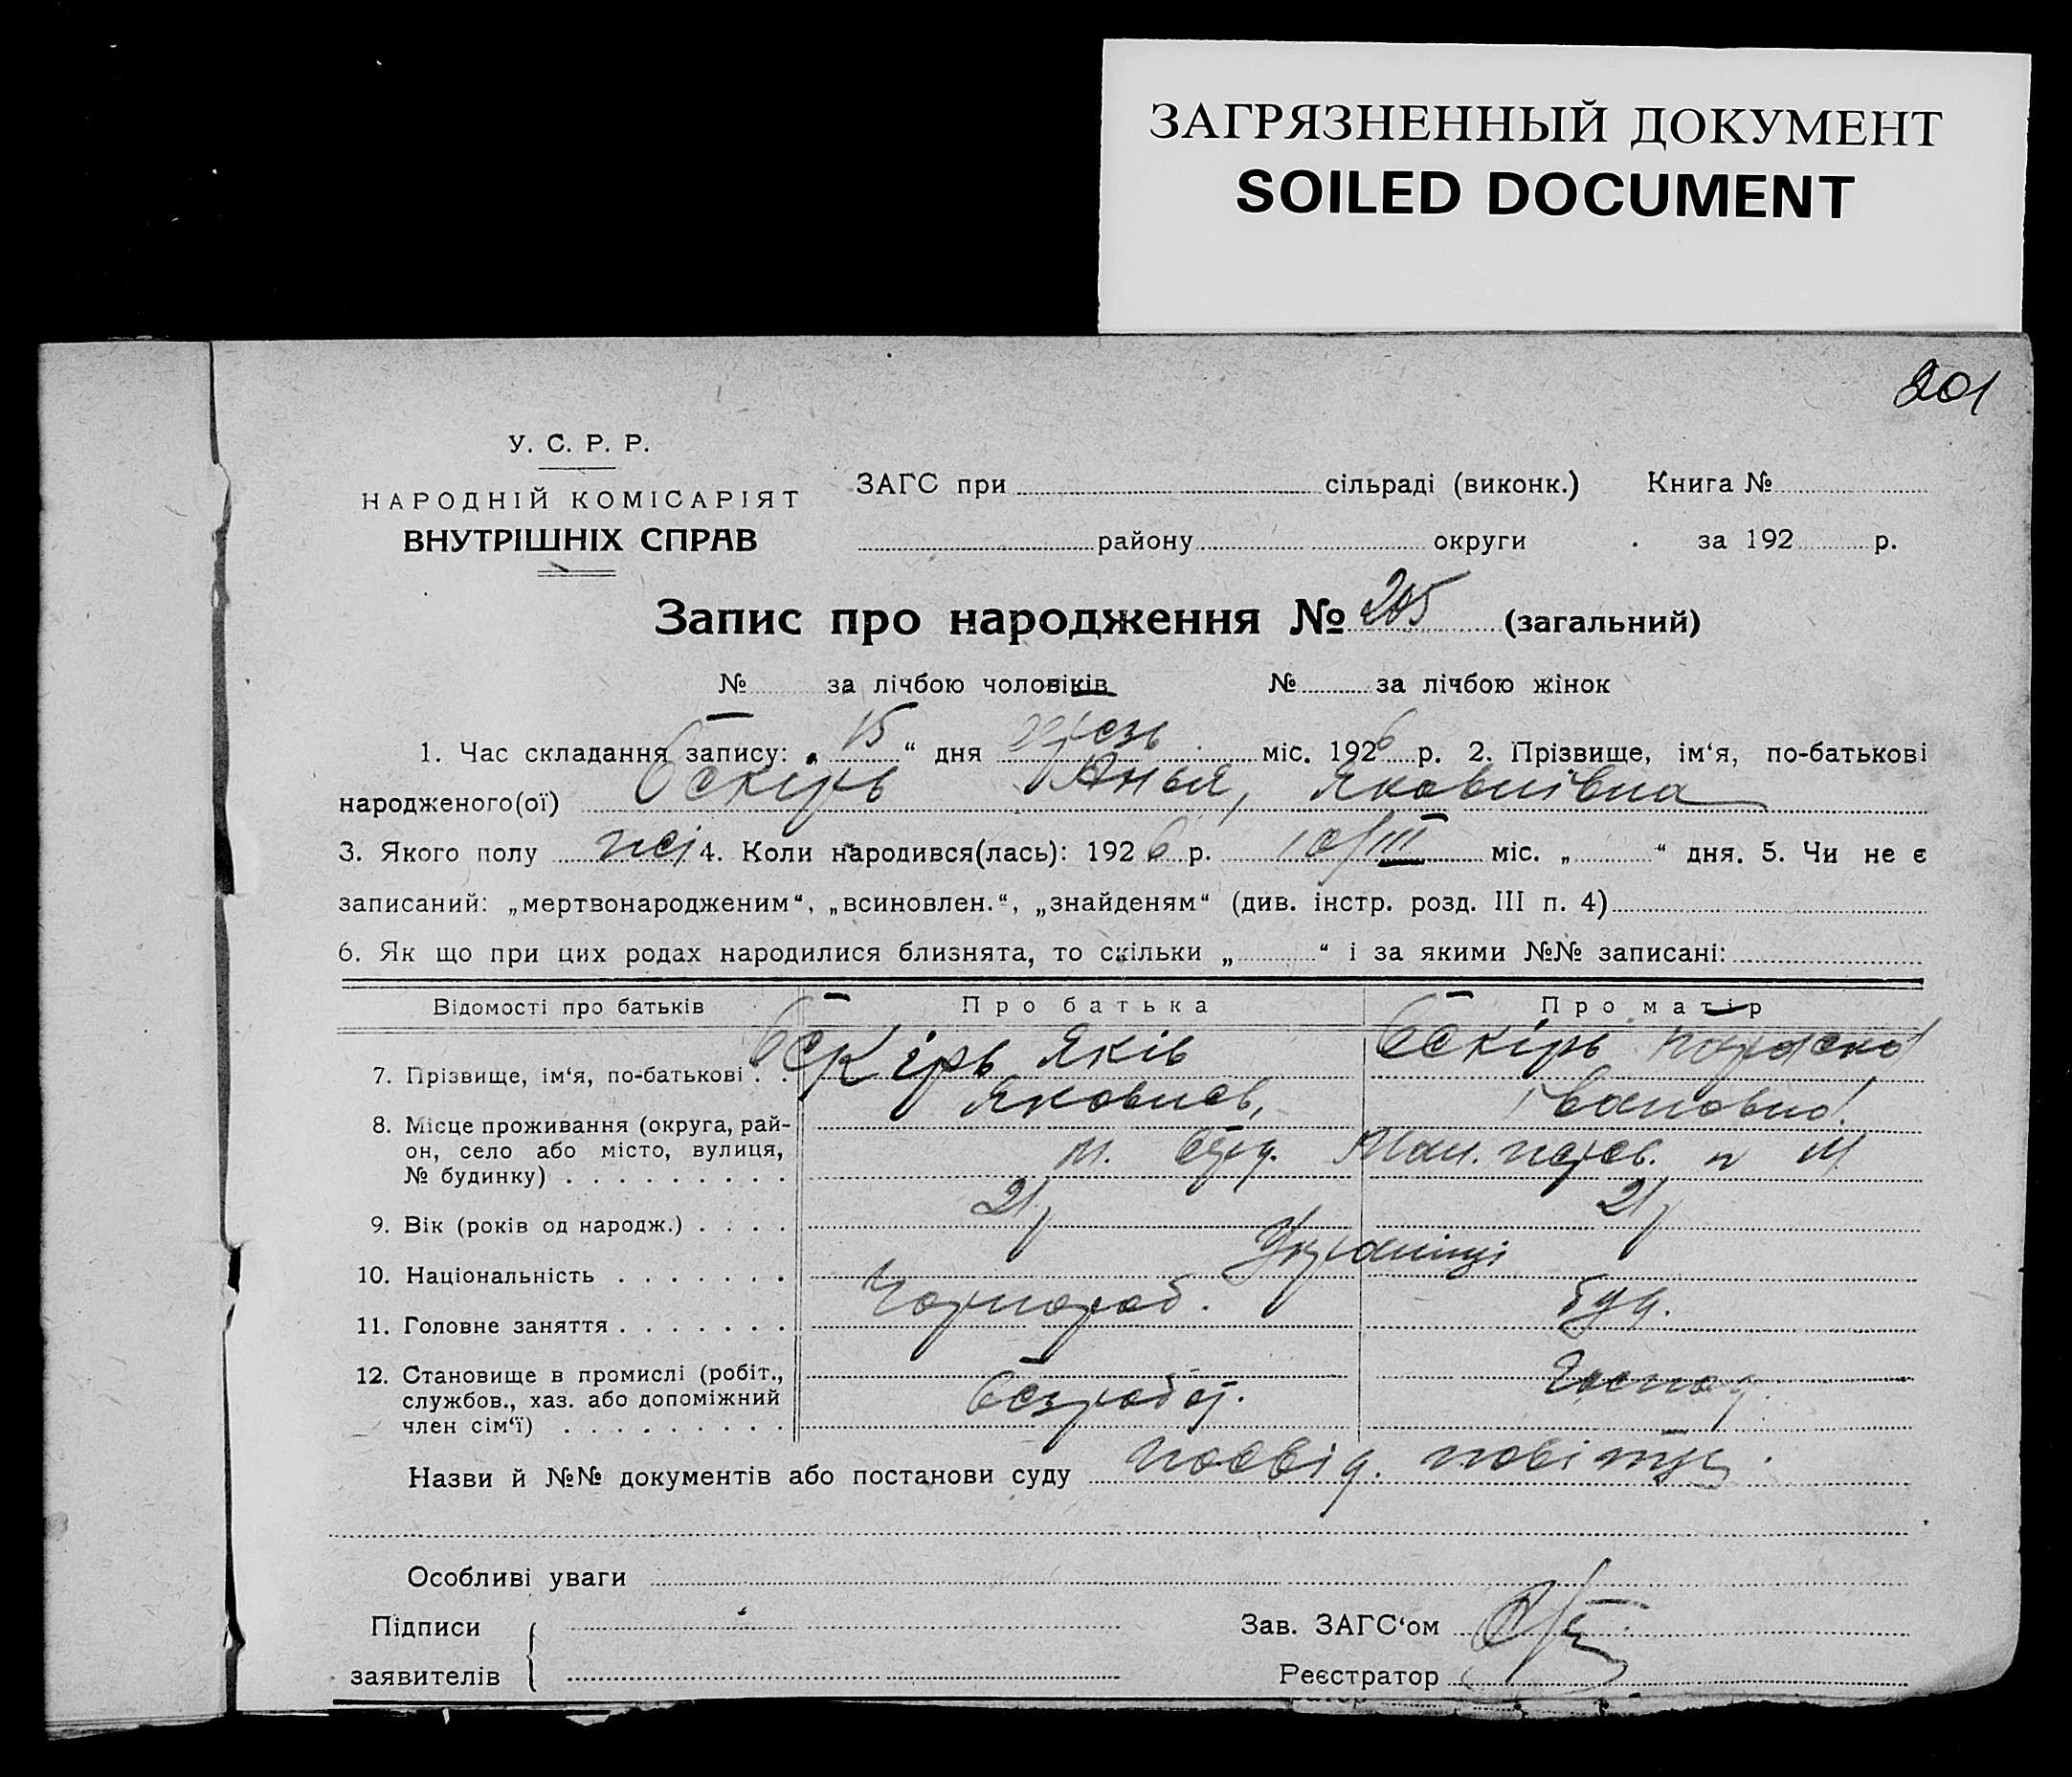 ЗАГРЯЗНЕННЫЙ ДОКУМЕНТ
SOILED DOCUMENT
201
У. С. Р. Р.
НАРОДНІЙ КОМІСАРІЯТ
ВНУТРІШНІХ СПРАВ
ЗАГС при сільраді (виконк.) Книга №
району округи за 192 р.
Запис про народження № 205 (загальний)
№ за лічбою чоловіків № за лічбою жінок
1. Час складання запису: „ 15 “ дня міс. 1926 р. 2. Прізвище, ім‘я, по-батькові
народженого(ої) Бскірь Анья, Яковлівна
3. Якого полу жі 4. Коли народився(лась): 1926 р. 10/III міс. „ “ дня. 5. Чи не є
записаний: „мертвонародженим“, „всиновлен.“, „знайденям“ (див. інстр. розд. III п. 4)
6. Як що при цих родах народилися близнята, то скільки „ “ і за якими №№ записані:
Відомості про батьків Про батька Про матір
7. Прізвище, ім‘я, по-батькові . . Бскірь Яків Бскірь Параска
Яковлев, Івановна
8. Місце проживання (округа, рай-
он, село або місто, вулиця,
№ будинку) . . . . . . . . .
9. Вік (років од народж.) . . . . 21 21
10. Національність . . . . . . . Українці
11. Головне заняття . . . . . . . Чорнороб.
12. Становище в промислі (робіт.,
службов., хаз. або допоміжний
член сім‘ї) . . . . . . . . . безробіт. господ.
Назви й №№ документів або постанови суду посвід. повітух
Особливі уваги
Підписи
заявителів
Зав. ЗАГС‘ом
Реєстратор